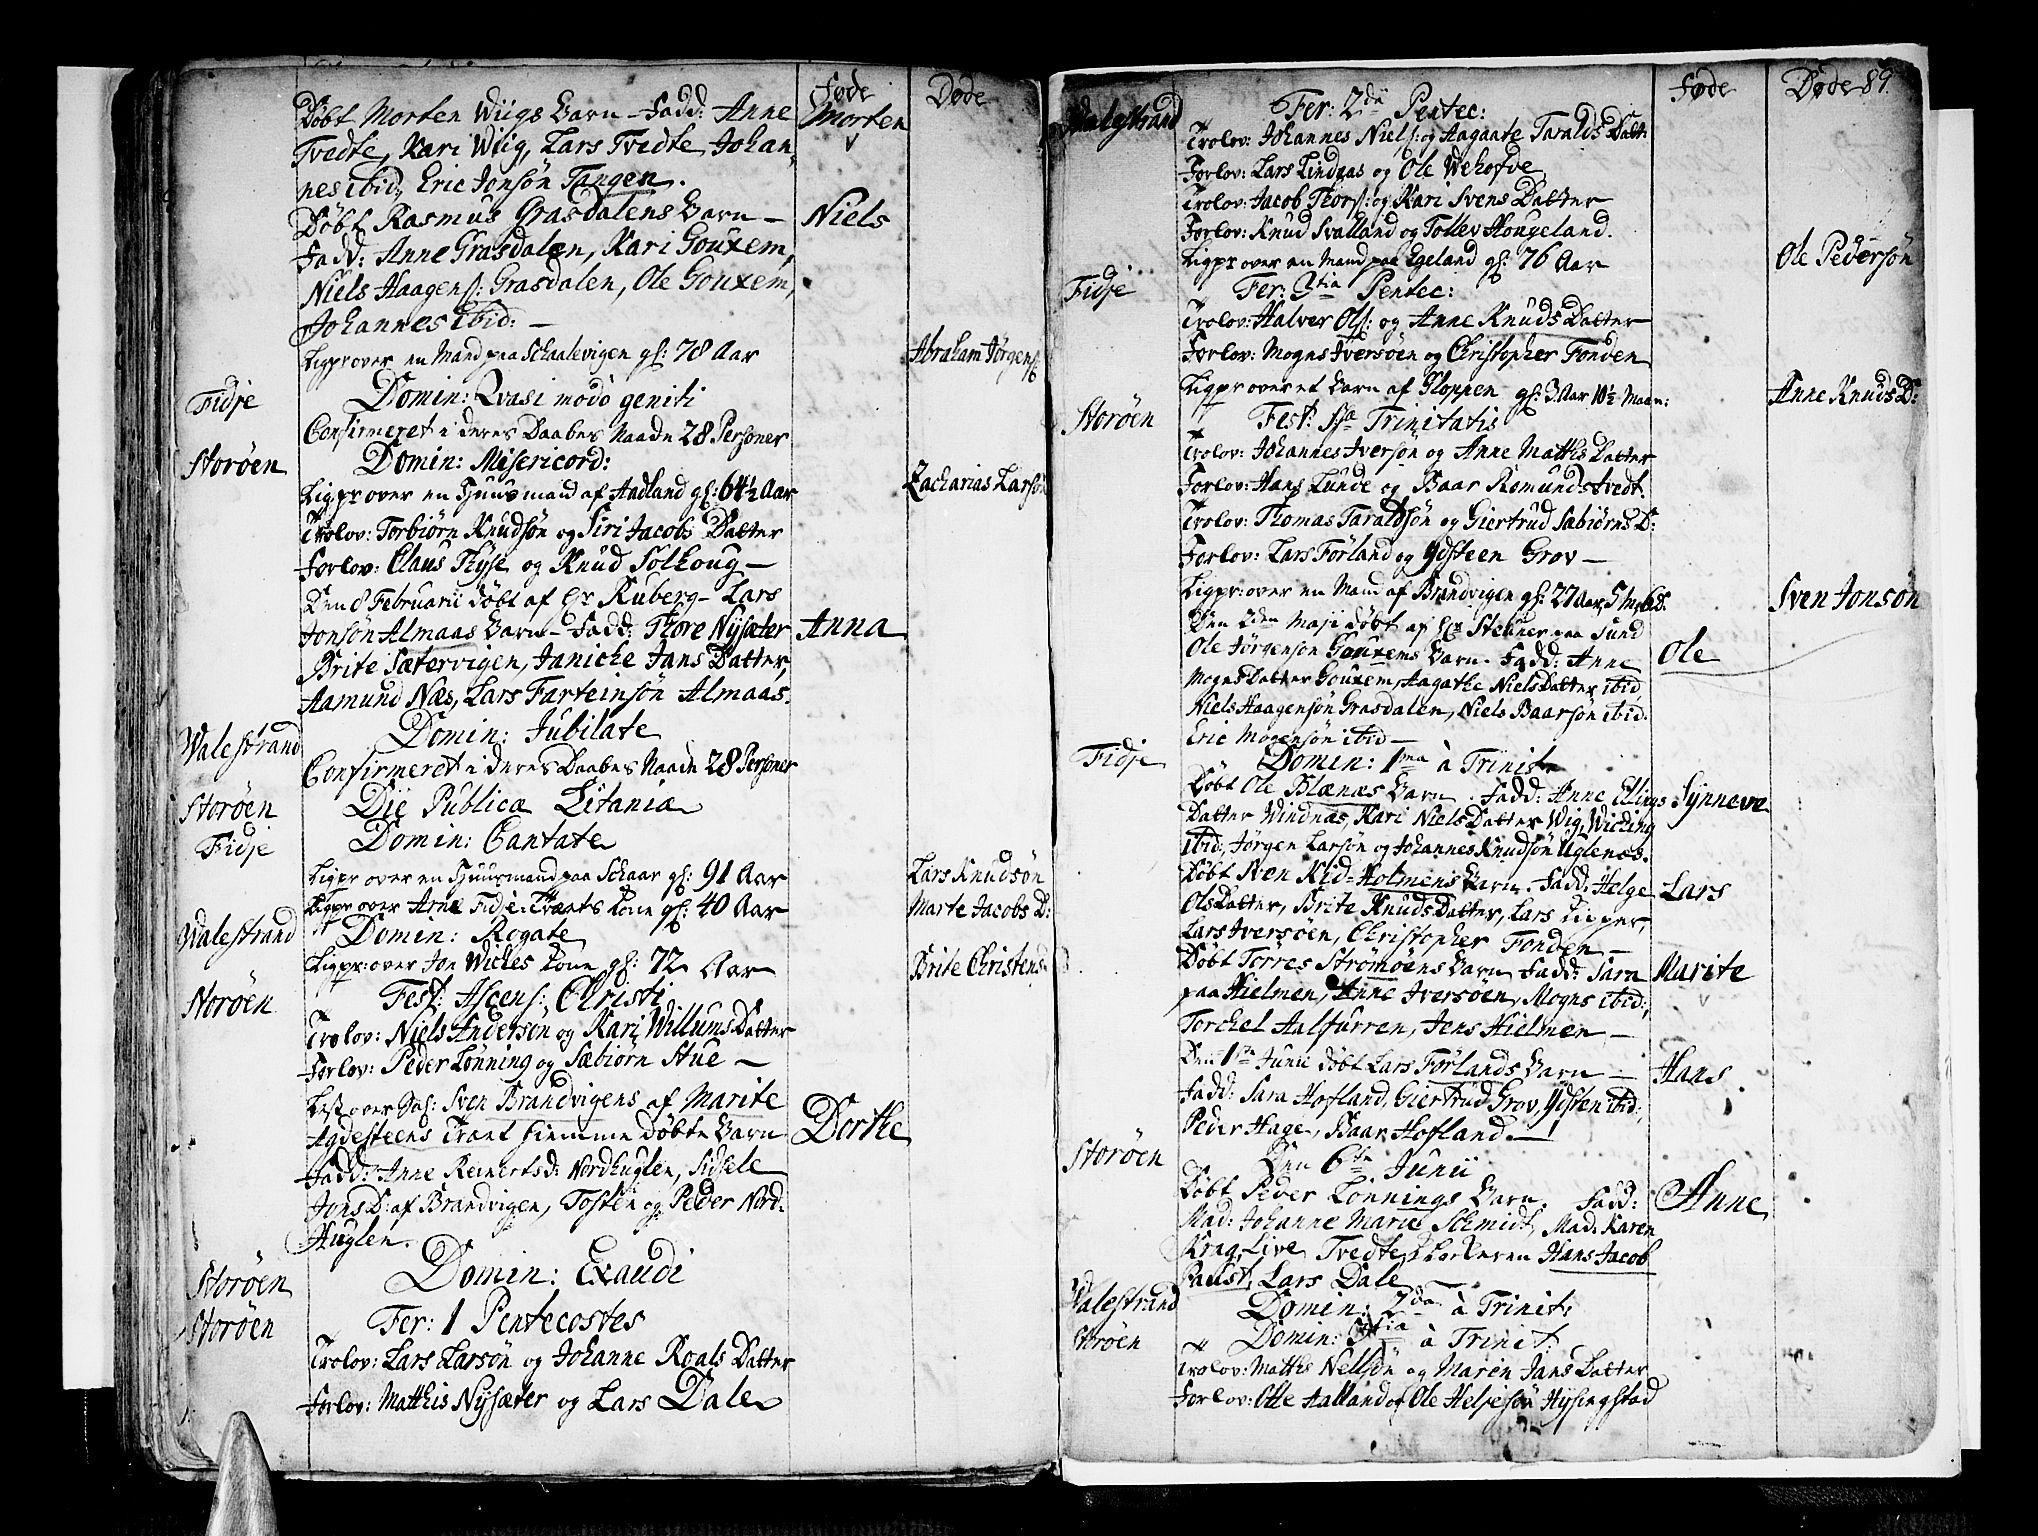 Føde
Døde
Døbt Morten Wiigs Barn - Fadd: Anne
Morten
Tvedte, Kari Wiig, Lars Tvedte, Johan
nes ibid, Eric Jonsön Tangen.
Døbt Rasmus Grasdalens Barn -
Niels
Fadd: Anne Grasdalen, Kari Gouxem,
Niels Haagens: Grasdalen, Ole Gouxem,
Johannes ibid: -
Ligpr over en Mand paa Schaalevigen gl: 78 Aar
Abraham Jörgens:
Fidje
Domin: Qvasi modo geniti
Confirmeret i deres Daabes Naade 28 Personer
Storöen
Domin: Misericord:
Ligpr over en Huusmand af Aadland gl: 64½ Aar
Zacharias Larsön
Trolov: Torbiörn Knudsön og Siri Jacobs Datter
Forlov: Claus Thyse og Knud Solhoug -
Den 8 Februarii döbt af Hr Ruberg - Lars
Jonsön Almaas Barn - Fadd: Thore Nysæter
Anna
Brite Sætervigen, Janiche Jans Datter,
Aamund Næs, Lars Farteinsön Almaas.
Walestrand
Domin: Jubilate
Confirmeret i deres Daabes Naade 28 Personer
Storöen
Die Publicæ Litaniæ
Fidje
Domin: Cantate
Ligpr over en Huusmand paa Schaar gl: 91 Aar
Lars Knudsön
Ligpr over Arne Fidje Kone gl: 40 Aar
Marte Jacobs D:
Walestrand
Domin: Rogate
Ligpr: over Jon Wickes Kone gl: 72 Aar
Brite Christens:
Storöen
Fest: Ascens: Christi
Trolov: Niels Andersön og Kari Willums Datter
Forlov: Peder Lönning og Sæbiörn Stue -
Lest over Sal: Sven Brandvigens af Marite
Agdesteens Trant hiemme döbte Barn
Dorthe
Fadd: Anne Reinertsd: Nordhuglen, Sidsele
Jons D: af Brandvigen, Tosten og Peder Nord-
Huglen.
Storöen
Domin: Exaudi
Storöen
Fer: 1 Pentecostes
Trolov: Lars Larsön og Johanne Roals Datter
Forlov: Matthis Nysæter og Lars Dale
Føde
Døde 89.
Walestrand
Fer: 2da Pentec:
Trolov: Johannes Niels: og Aagaate Taralds Datt:
Forlov: Lars Lindaas og Ole Wehofde
Trolov: Jacob Thors: og Kari Svens Datter
Forlov: Knud Svalland og Tollev Hougeland.
Ligpr over en Mand paa Egeland gl: 76 Aar
Ole Pedersön
Fidje
Fer: 3tia Pentec:
Trolov: Halver Ols: og Anne Knuds Datter
Forlov: Mogns Iversöen og Christopher Fonden
Ligpr over et Barn af Kloppen gl: 3 Aar 10½ Maan:
Anne Knuds D:
Storöen
Fest: Ssa Trinitatis
Trolov: Johannes Iversön og Anne Matthis Datter
Forlov: Hans Lunde og Baar Romundstvedt.
Trolov: Thomas Taraldsön og Giertrud Sæbiörns D:
Forlov: Lars Förland og Ydsteen Grov -
Ligpr: over en Mand af Brandvigen gl: 27 Aar, 5 M: 6 D.
Sven Jonsön
Den 2den Maji döbt af Hr Stebner paa Sund
Ole Jörgensön Gouxems Barn. Fadd: Anne
Ole
Mogns Datter Gouxem, Aagathe Niels Datter ibid
Niels Haagensön Grasdalen, Niels Baarsön ibid.
Eric Mogensön ibid -
Fidje
Domin: 1ma à Trinit
Döbt Ole Blænæs Barn. Fadd: Anne Ellings
Synneve
Datter Windnas, Kari Niels Datter Wig, Wiching
ibid:, Jörgen Larsön og Johannes Knudsön Uglenæs.
Döbt Iven Kid-Holmens Barn. Fadd: Helge
Lars
Ols Datter, Brite Knuds Datter, Lars Kipper,
Lars Iversöen, Christopher Fonden -
Döbt Torres Strömöens Barn Fadd: Sara
Marite
paa Hielmen, Anne Iversöen, Mogns ibid:,
Torchel Aalfurren, Jens Hielmen -
Den 1te Junii döbt Lars Förlands Barn -
Hans
Fadd: Sara Hofland, Giertrud Grov, Ydsten ibid:,
Peder Hage, Baar Hofland. -
Storöen
Den 6te Junii
Döbt Peder Lönnings Barn. Fadd:
Anne
Mad: Johanne Marie Schmidt, Mad: Karen
Krag, Live Tvedte, Klockeren Hans Jacob
Faust, Lars Dale
Walestrand
Domin: 2da à Trinit:
Storöen
Domin: 3tia à Trinit:
Trolov: Mathis Nellsön og Maren Jans Datter
Forlov: Otte Aalland og Ole Heljesön Hysingstad